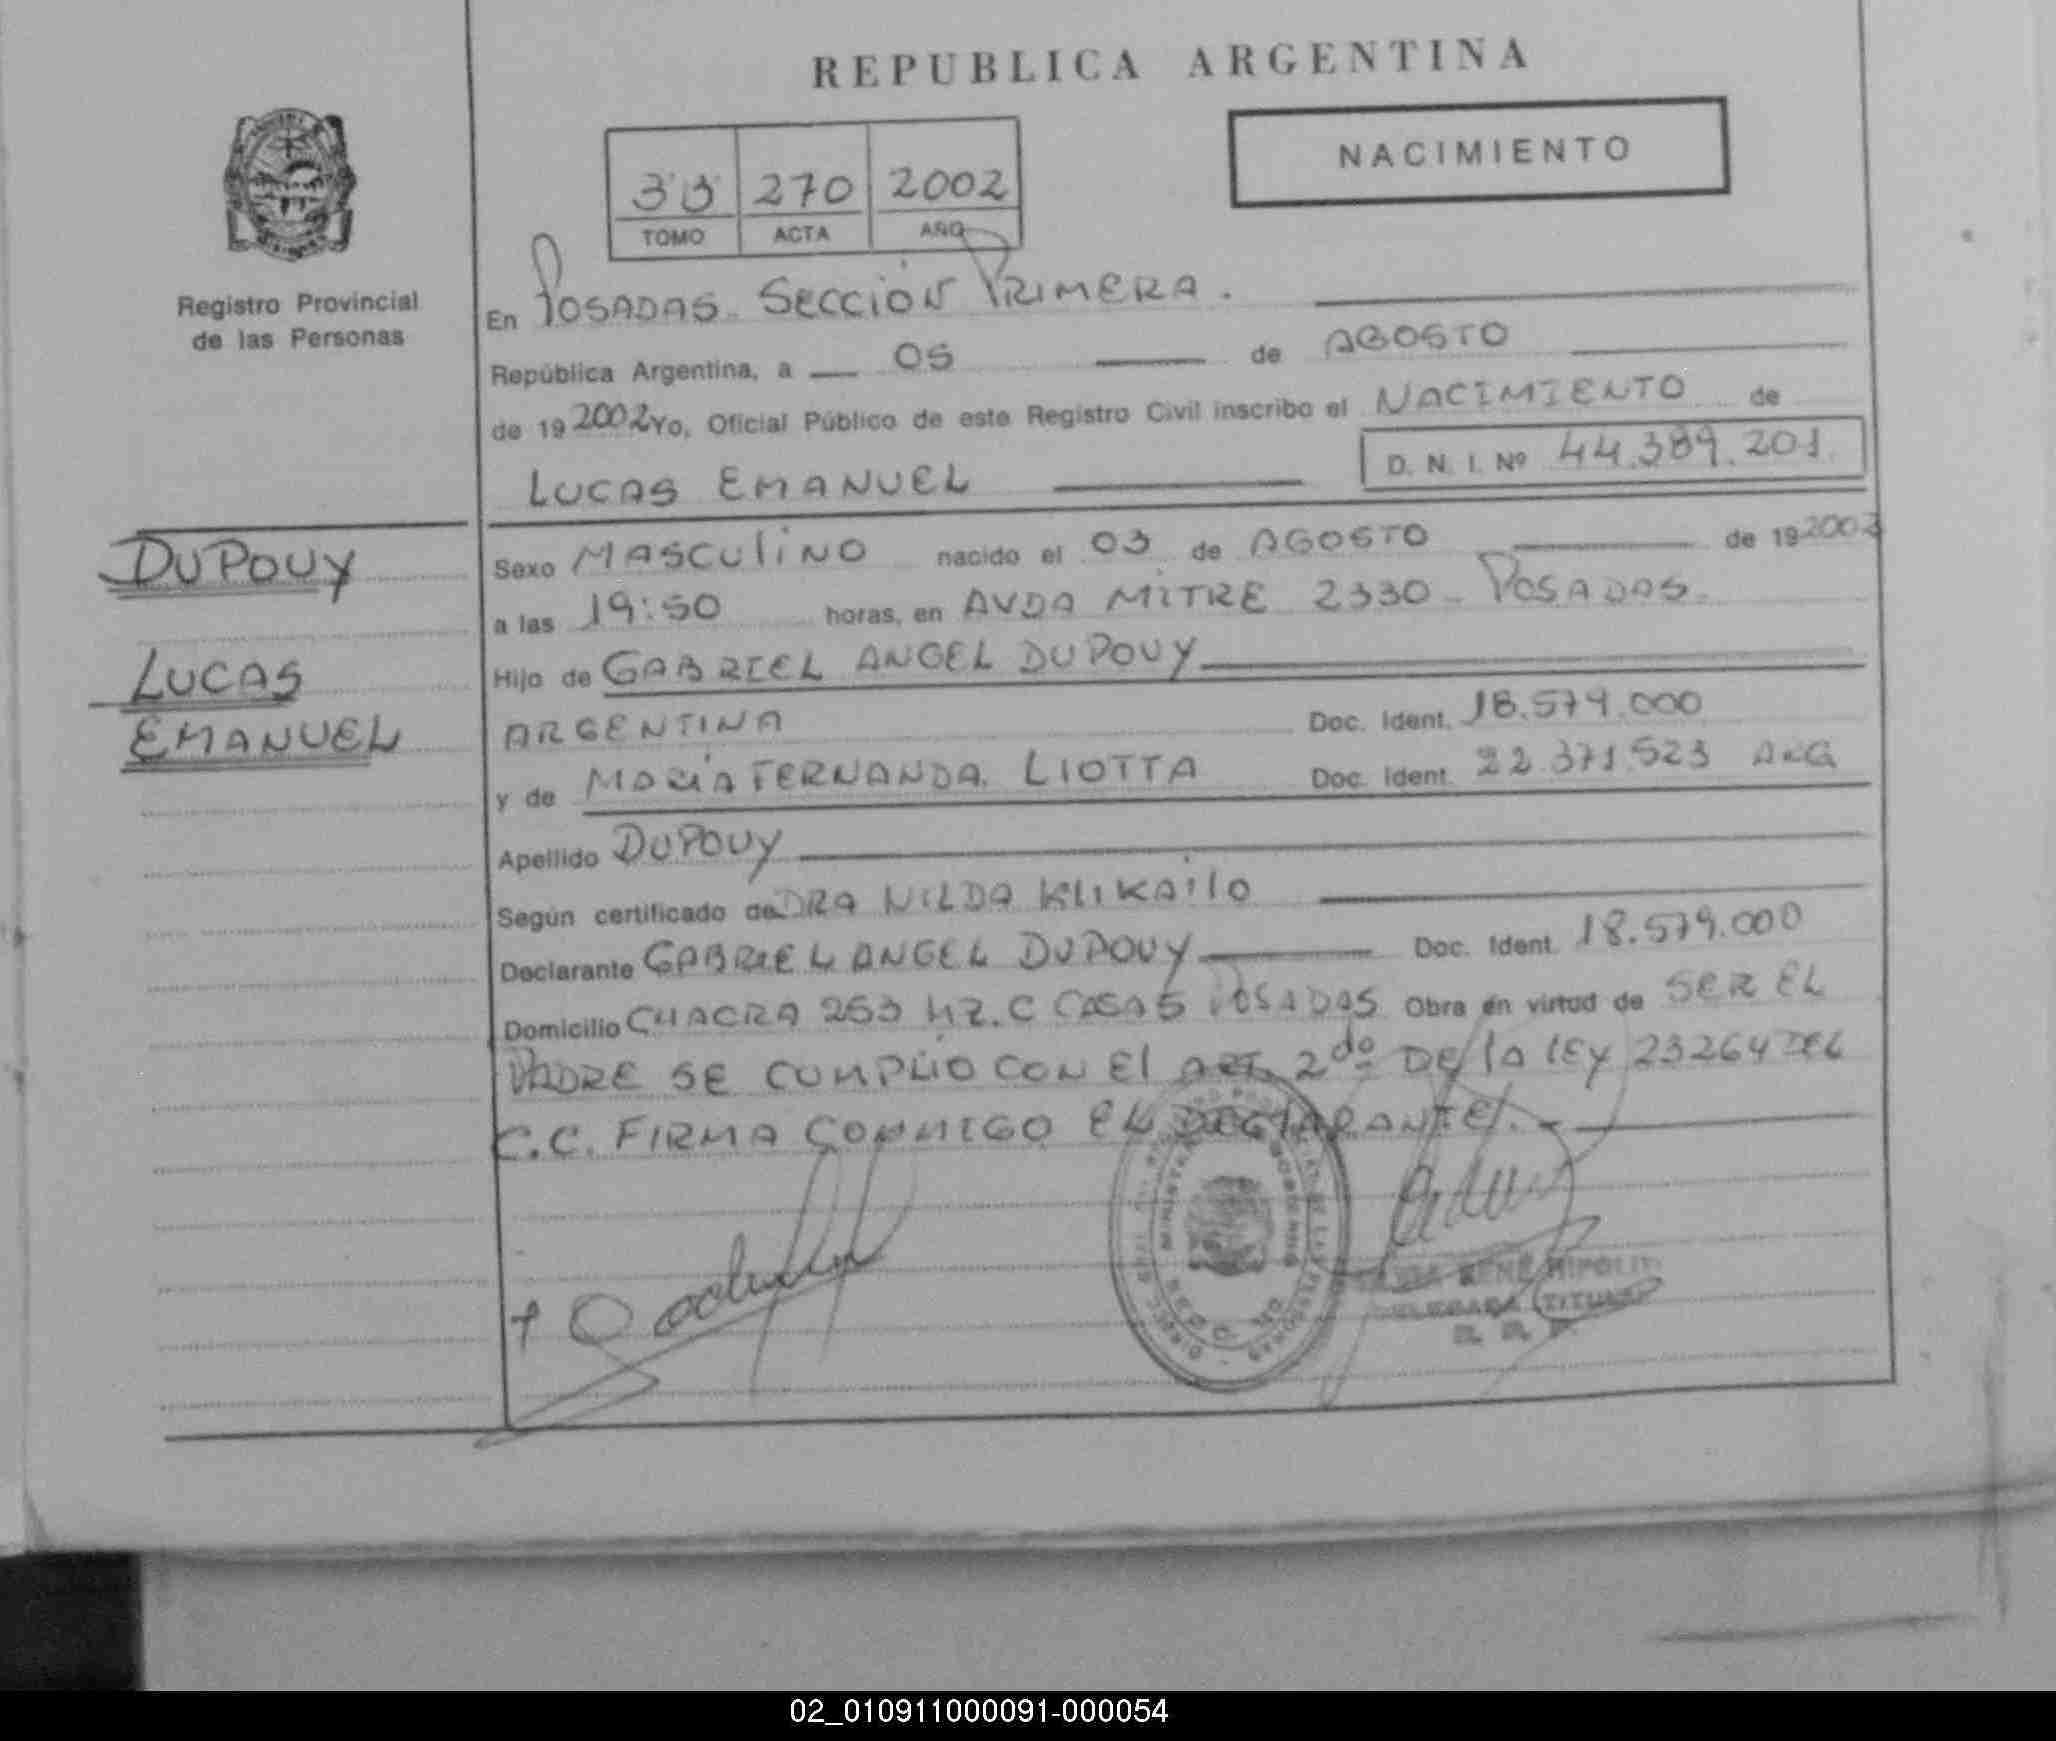 REPUBLICA ARGENTINA
NACIMIENTO
270 2002
TOMO ACTA AÑO
Registro Provincial
de las Personas
En POSADAS SECCION PRIMERA.
República Argentina, a 05 de AGOSTO
de 19 2002 Yo, Oficial Público de este Registro Civil inscribo el NACIMIENTO de
LUCAS EMANUEL D. N. I. Nº 44.389.201
DUPOUY
LUCAS
EMANUEL
Sexo MASCULINO nacido el 03 de AGOSTO de 19 2002
a las 19:50 horas, en AVDA MITRE 2330 - POSADAS.
Hijo de GABRIEL ANGEL DUPOUY
ARGENTINA Doc. Ident. 18.579.000
y de MARÍA FERNANDA LIOTTA Doc. Ident. 22.371.523 ARG
Apellido DUPOUY
Según certificado de DRA NILDA KLIKAILO
Declarante GABRIEL ANGEL DUPOUY Doc. Ident. 18.579.000
Domicilio CHACRA 253 MZ. C CASA 5 POSADAS Obra en virtud de SER EL
PADRE SE CUMPLIO CON EL ART. 2do DE LA LEY 23264 DEL
C.C. FIRMA CONMIGO EL DECLARANTE. -
RENE HIPOLIT
TITULAR
02_010911000091-000054